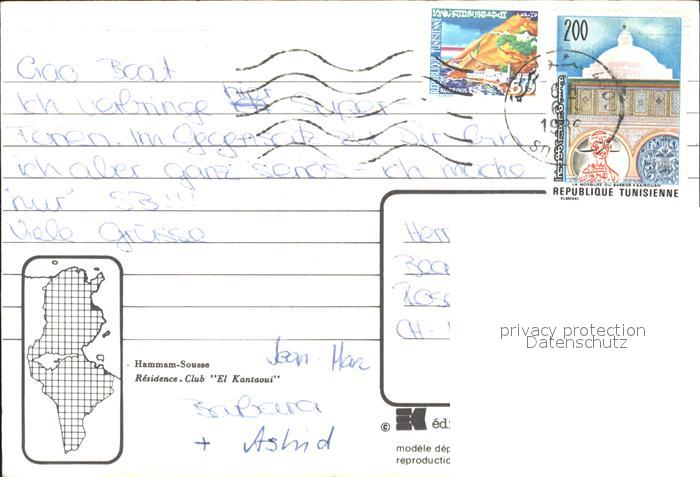 Ciao Beat
Ich verbringe hier super-
Ferien. Im Gegensatz zu Dir bin
ich aber ganz seriös - ich mache
"nur" SB!!!
Viele Grüsse
Jean-Marc
Barbara
+ Astrid
Hammam-Sousse
Résidence-Club "El Kantaoui"
REPUBLIQUE TUNISIENNE
KORBOUS
200
LA MOSQUEE DU BARBIER KAIROUAN
REPUBLIQUE TUNISIENNE
ELMEKKI
Herr
CH-
privacy protection
Datenschutz
© édi
modèle dép
reproductio